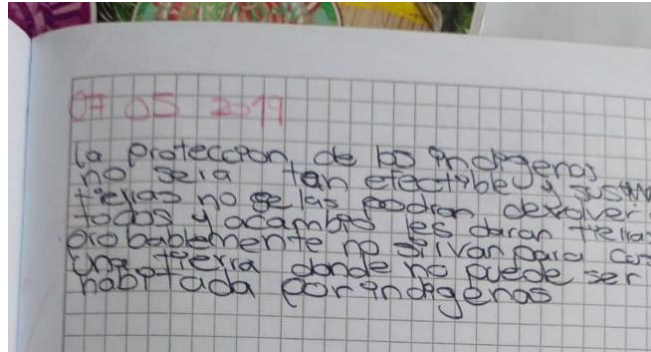 07 05 2019
la proteccion de los indigenas
no sera tan efectible y sus
tierras no se las podran devolver
todos y acambio les daran tierras
probablemente no sirvan para
una tierra donde no puede ser
habitada por indigenas